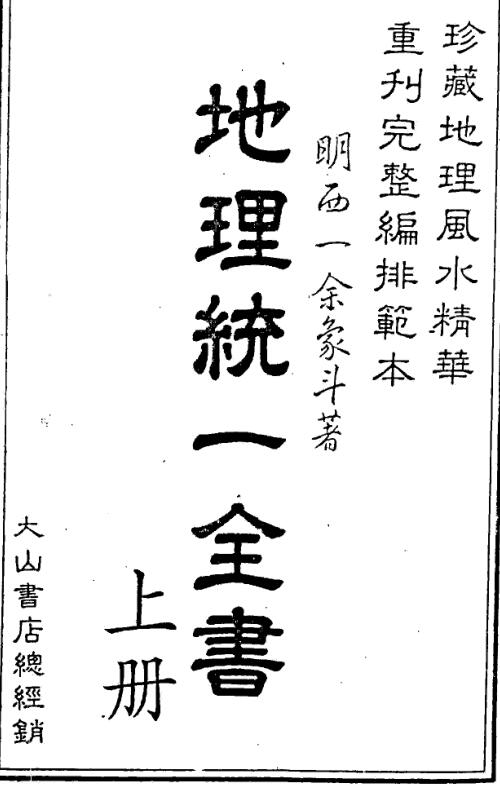 珍藏地理風水精華
重刋完整編排範本
明西一余象斗著
地理統一全書
上册
大山書店總經銷